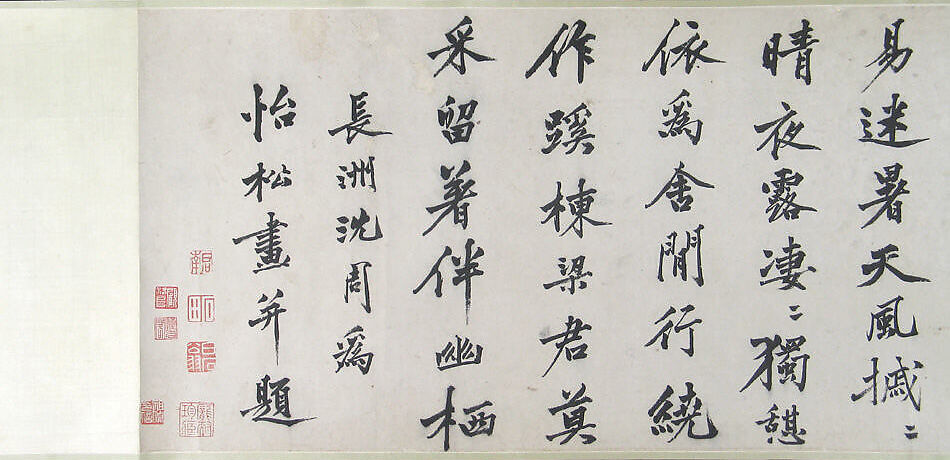 易迷暑天風摵〻
晴夜露淒〻獨憇
依爲舍閒行繞
作蹊棟梁君莫
采留著伴幽栖
長洲沈周爲
怡松畫并題
石田